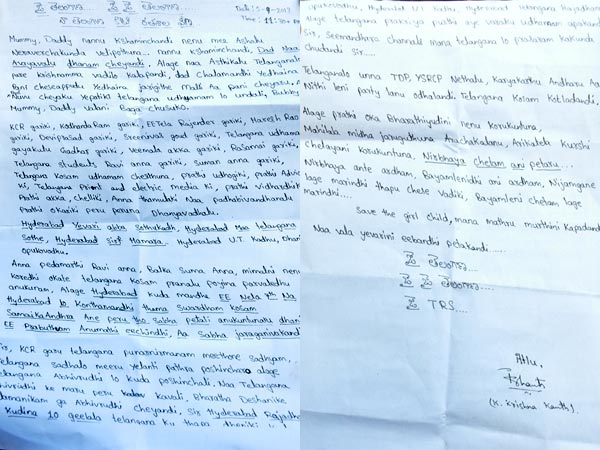 జై తెలంగాణ.... జై జై తెలంగాణ....
Date: 5-9-2013
Time: 11:30
Mummy, Daddy nannu Kshaminchandi nenu mee Ashalu
Neraverchakunda velipothuna... nannu Kshaminchandi, Dad Naa
Avayavalu dhanam cheyandi. Alage naa Asthikalu Telanganalo
pare krishnamma vadilo kalapandi, dad Chalamandhi Yedhaina
Pani cheseappudu Yedhaina jarigithe Malli Aa pani cheyaru,
Nanu cheyaku yepatiki telangana udhyamam lo undali, Bubbly
Mummy, Daddy Valani Baga Chusuko.
KCR gariki, KothandaRam gariki, EETela Rajender gariki, Hareesh Rao
gariki, Deviprasad gariki, Sreenivas goud gariki, Telangana udhama
gayakulu Gadhar gariki, Veemala akka gariki, Rasamai gariki,
Telangana Students Ravi anna gariki, Suman anna gariki,
Telangana Kosam udhamam chesthuna, prathi udhogiki, prathi Advoc
Ki, Telangana Print and electric media Ki, prathi Vidhardhi
Prathi akka, chelliki, Anna thamudki Naa padhabivandhanalu
Prathi okariki peru peruna Dhanyavadhalu.
Hyderabad Yevari abba sothukadh, Hyderabad Maa telangana
Sothe, Hyderabad sirf Hamara. Hyderabad U.T. Kadhu,
opukovadhu.
Anna pedamathi Ravi anna, Balka Suma Anna, mimalni nenu
Koredhi okate telangana Kosam pranalu poyina parvaledhu
anukuran, Alage Hyderabad kuda mandhe EE Nela 7th Na
Hyderabad lo Konthamandhi thama Swardham Kosam
SamaikAndhra Ane peru tho Sabha petali anukuntunaru
EE Prabutham Anumathi eechindhi, Aa Sabha jaraganivakandi
Sir, KCR garu telangana punarnirmanam meethone sadhyam,
Telangana sadhalo meeru yelanti pathra poshincharo alage
Telangana Abhivrudhi lo kuda poshinchali. Naa Telangana
Abhivrudhi ke maru peru kavali, Bharatha Deshanike
ga Abhivrudhi cheyandi, Sir Hyderabad Rajadhani
Kudina 10 geelala telangana ku thapa dheniki
opukovadhu, Hyderabad U.T. Kadhu, Hyderabad telangana Rajadhani
Alage telangana prakriya purthi aye varaku udhamam apakandi
Sir, Seemandhara channels mana telangana lo prasaram kakunda
chudandi Sir....
Telanganalo unna TDP, YSRCP Nethalu, Karyakarthu Andharu Aa
Nithi leni party lanu odhalandi. Telangana Kosam Kotladandi.
Alage prathi oka Bharathiyudini nenu korukuntuna,
Mahilala midha jaruguthuna Arachakalanu, Arikateli Kurshi
Chelayani korukuntuna, Nirbhaya chelam ani petaru...
Nirbhaya ante ardham, Bayamlenidhi ani ardham, Nijamgane
lage marindhi thapu chese vadiki, Bayamleni chelam lage
marindhi....
Save the girl child, mana mathru murthini Kapadandi
Naa vala yevarini eebandhi pelakandi.....
జై తెలంగాణ....
జై జై తెలంగాణ....
జై TRS....
Itlu,
(K. Krishna Kanth).